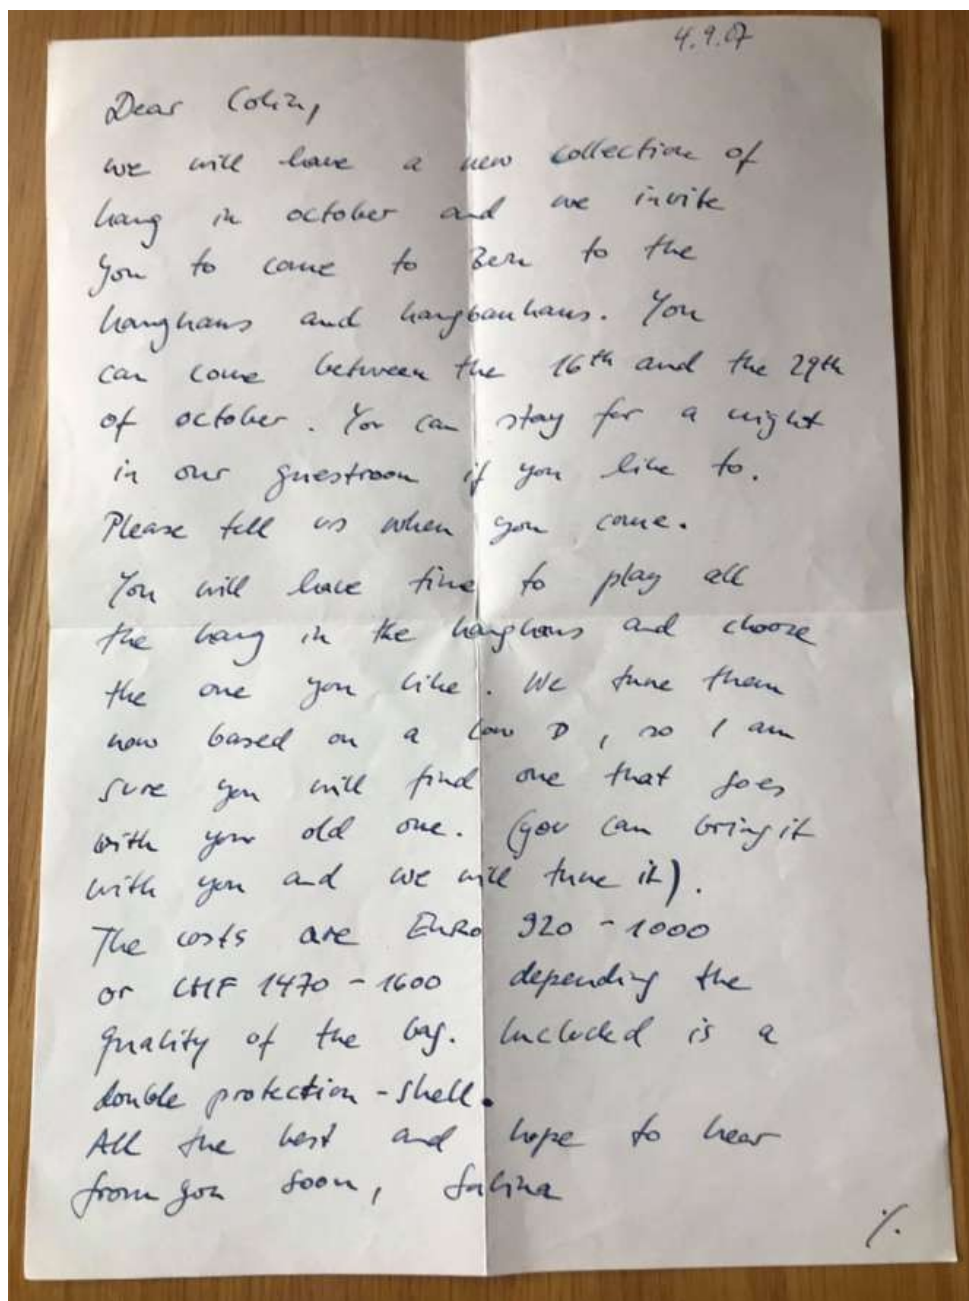 4.9.07
Dear Colin,
we will have a new collection of
hang in october and we invite
You to come to Bern to the
hanghaus and hangbauhaus. You
can come between the 16th and the 29th
of october. You can stay for a night
in our guestroom if you like to.
Please tell us when you come.
You will have time to play all
the hang in the hanghaus and choose
the one you like. We tune them
now based on a low D, so I am
sure you will find one that goes
with your old one. (you can bring it
with you and we will tune it).
The costs are EURO 920 - 1000
or CHF 1470 - 1600 depending the
quality of the bag. Included is a
double protection-shell.
All the best and hope to hear
from you soon, Sabina
·/.